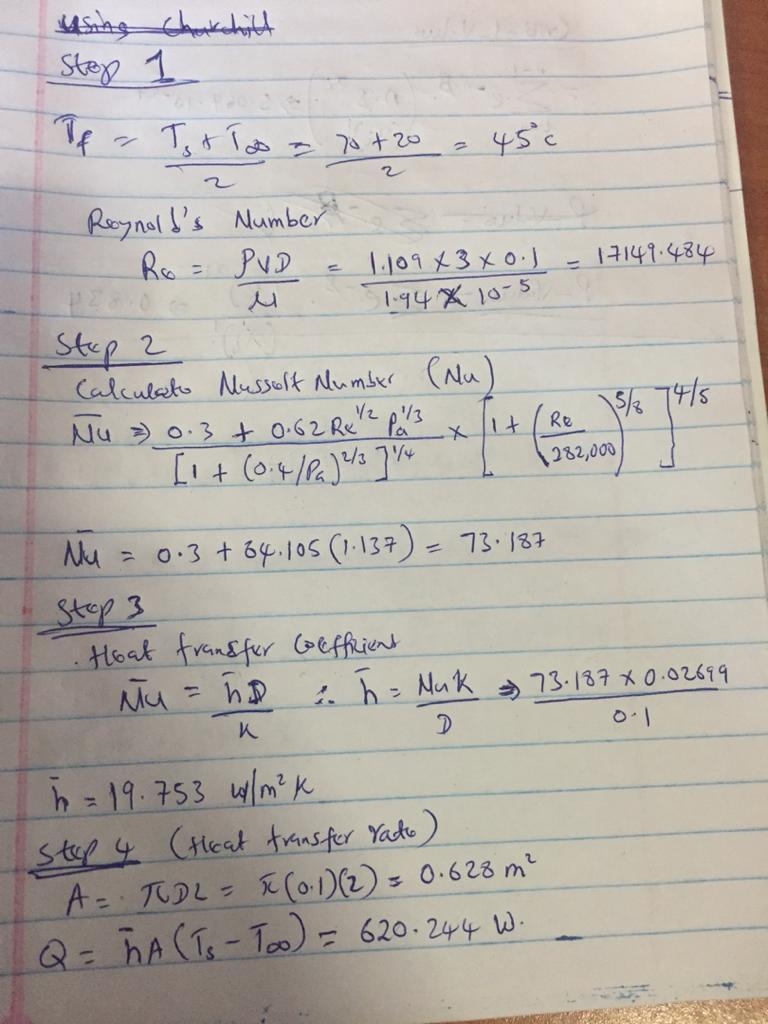 using Churchill
Step 1
T̄f = Ts + T∞ / 2 = 70 + 20 / 2 = 45°C
Reynold's Number
Re = ρVD / μ = 1.109 × 3 × 0.1 / 1.94 × 10⁻⁵ = 17149.484
Step 2
Calculate Nusselt Number (Nu)
N̄u ⇒ 0.3 + 0.62 Re^1/2 Pa^1/3 / [1 + (0.4/Pa)^2/3]^1/4 × [1 + (Re / 282,000)^5/8]^4/5
N̄u = 0.3 + 64.105 (1.137) = 73.187
Step 3
. Heat transfer Coefficient
N̄u = h̄D / K ∴ h̄ = NuK / D ⇒ 73.187 × 0.02699 / 0.1
h̄ = 19.753 W/m²K
Step 4 (Heat transfer rate)
A = πDL = π(0.1)(2) = 0.628 m²
Q = h̄A (Ts – T∞) = 620.244 W.